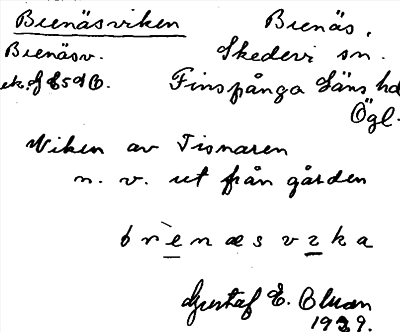 Brenäsviken Brenäs,
Brenäsv. Skedevi sn.
ek. af Finspånga Läns hd
Ögl.
Viken av Tisnaren
n. v. ut från gården
b r e n æ s v z k a
Gustaf E.
1929.